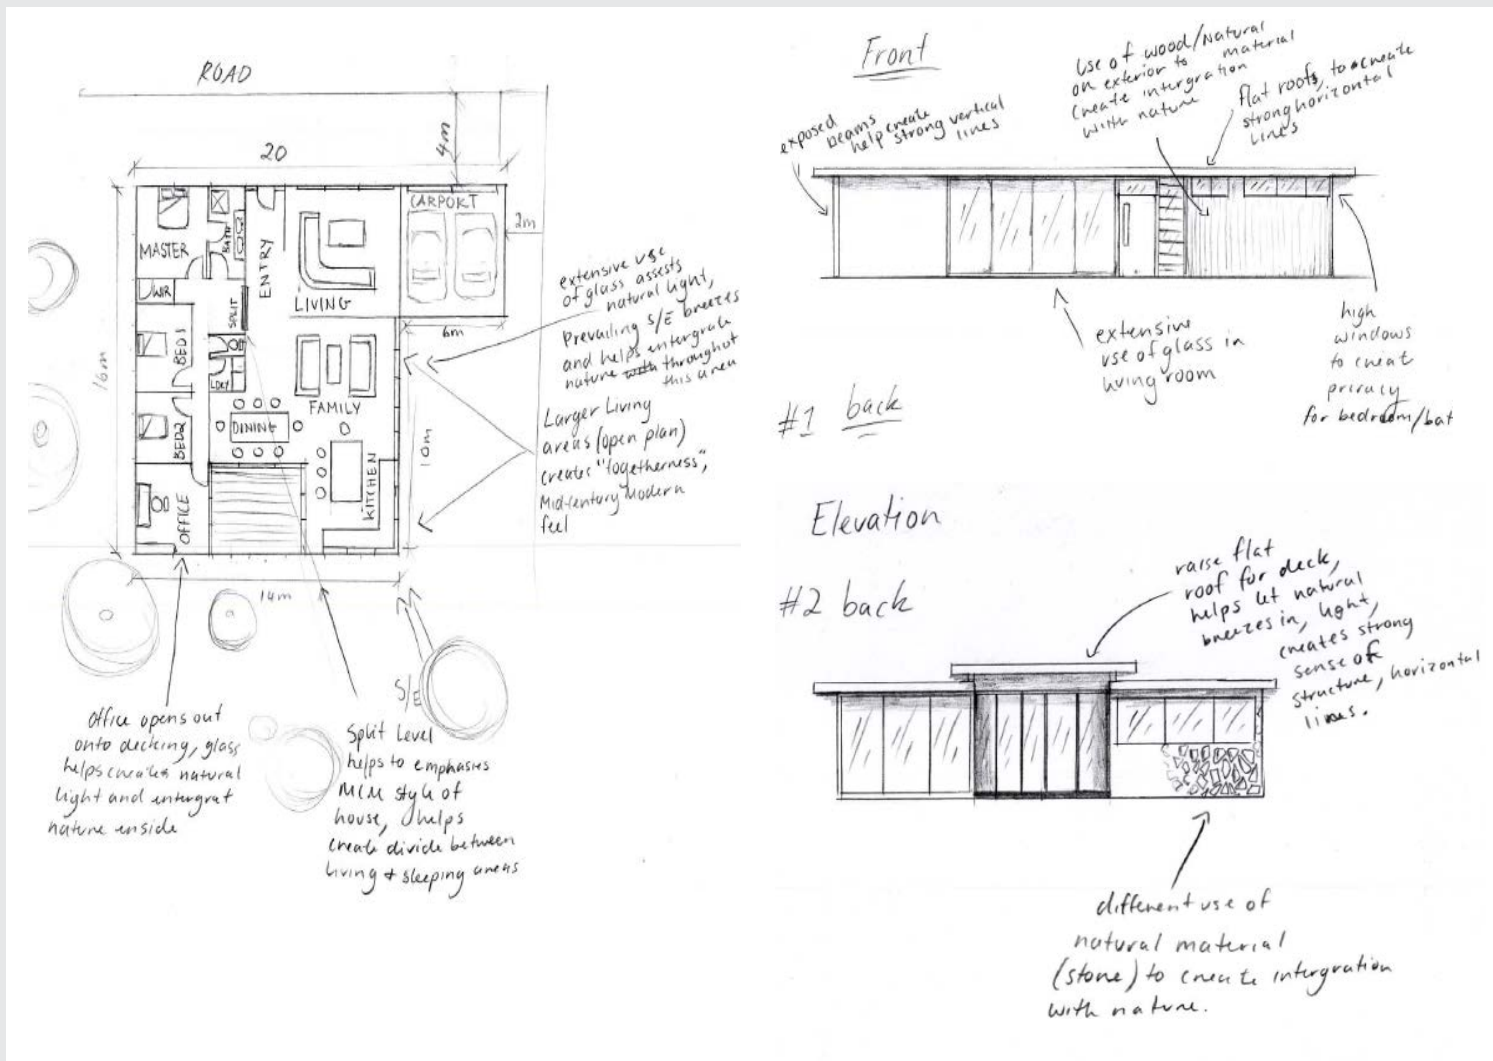 ROAD
20
4m
16m
MASTER
BATH
ENTRY
CARPORT
2m
WIR
SPLIT
LIVING
6m
BED1
LDRY
FAMILY
DINING
BED2
KITCHEN
10m
OFFICE
14m
S/E
extensive use
of glass assests
natural light,
Prevailing S/E breezes
and helps intergrate
nature with throughout
this area
Larger Living
areas (open plan)
creates "togetherness",
Mid-century Modern
feel
Office opens out
onto decking, glass
helps creates natural
light and intergrat
nature inside
Split Level
helps to emphasies
MCM style of
house, helps
create divide between
living + sleeping areas
Front
exposed
beams
help create
strong vertical
lines
Use of wood/Natural
material
on exterior to
create intergration
with nature
flat roofs, to create
strong horizontal
lines
extensive
use of glass in
living room
high
windows
to creat
privacy
for bedroom/bat
#1 back
Elevation
#2 back
raise flat
roof for deck,
helps let natural
breezes in, light,
creates strong
sense of
structure, horizontal
lines.
different use of
natural material
(stone) to create intergration
with nature.